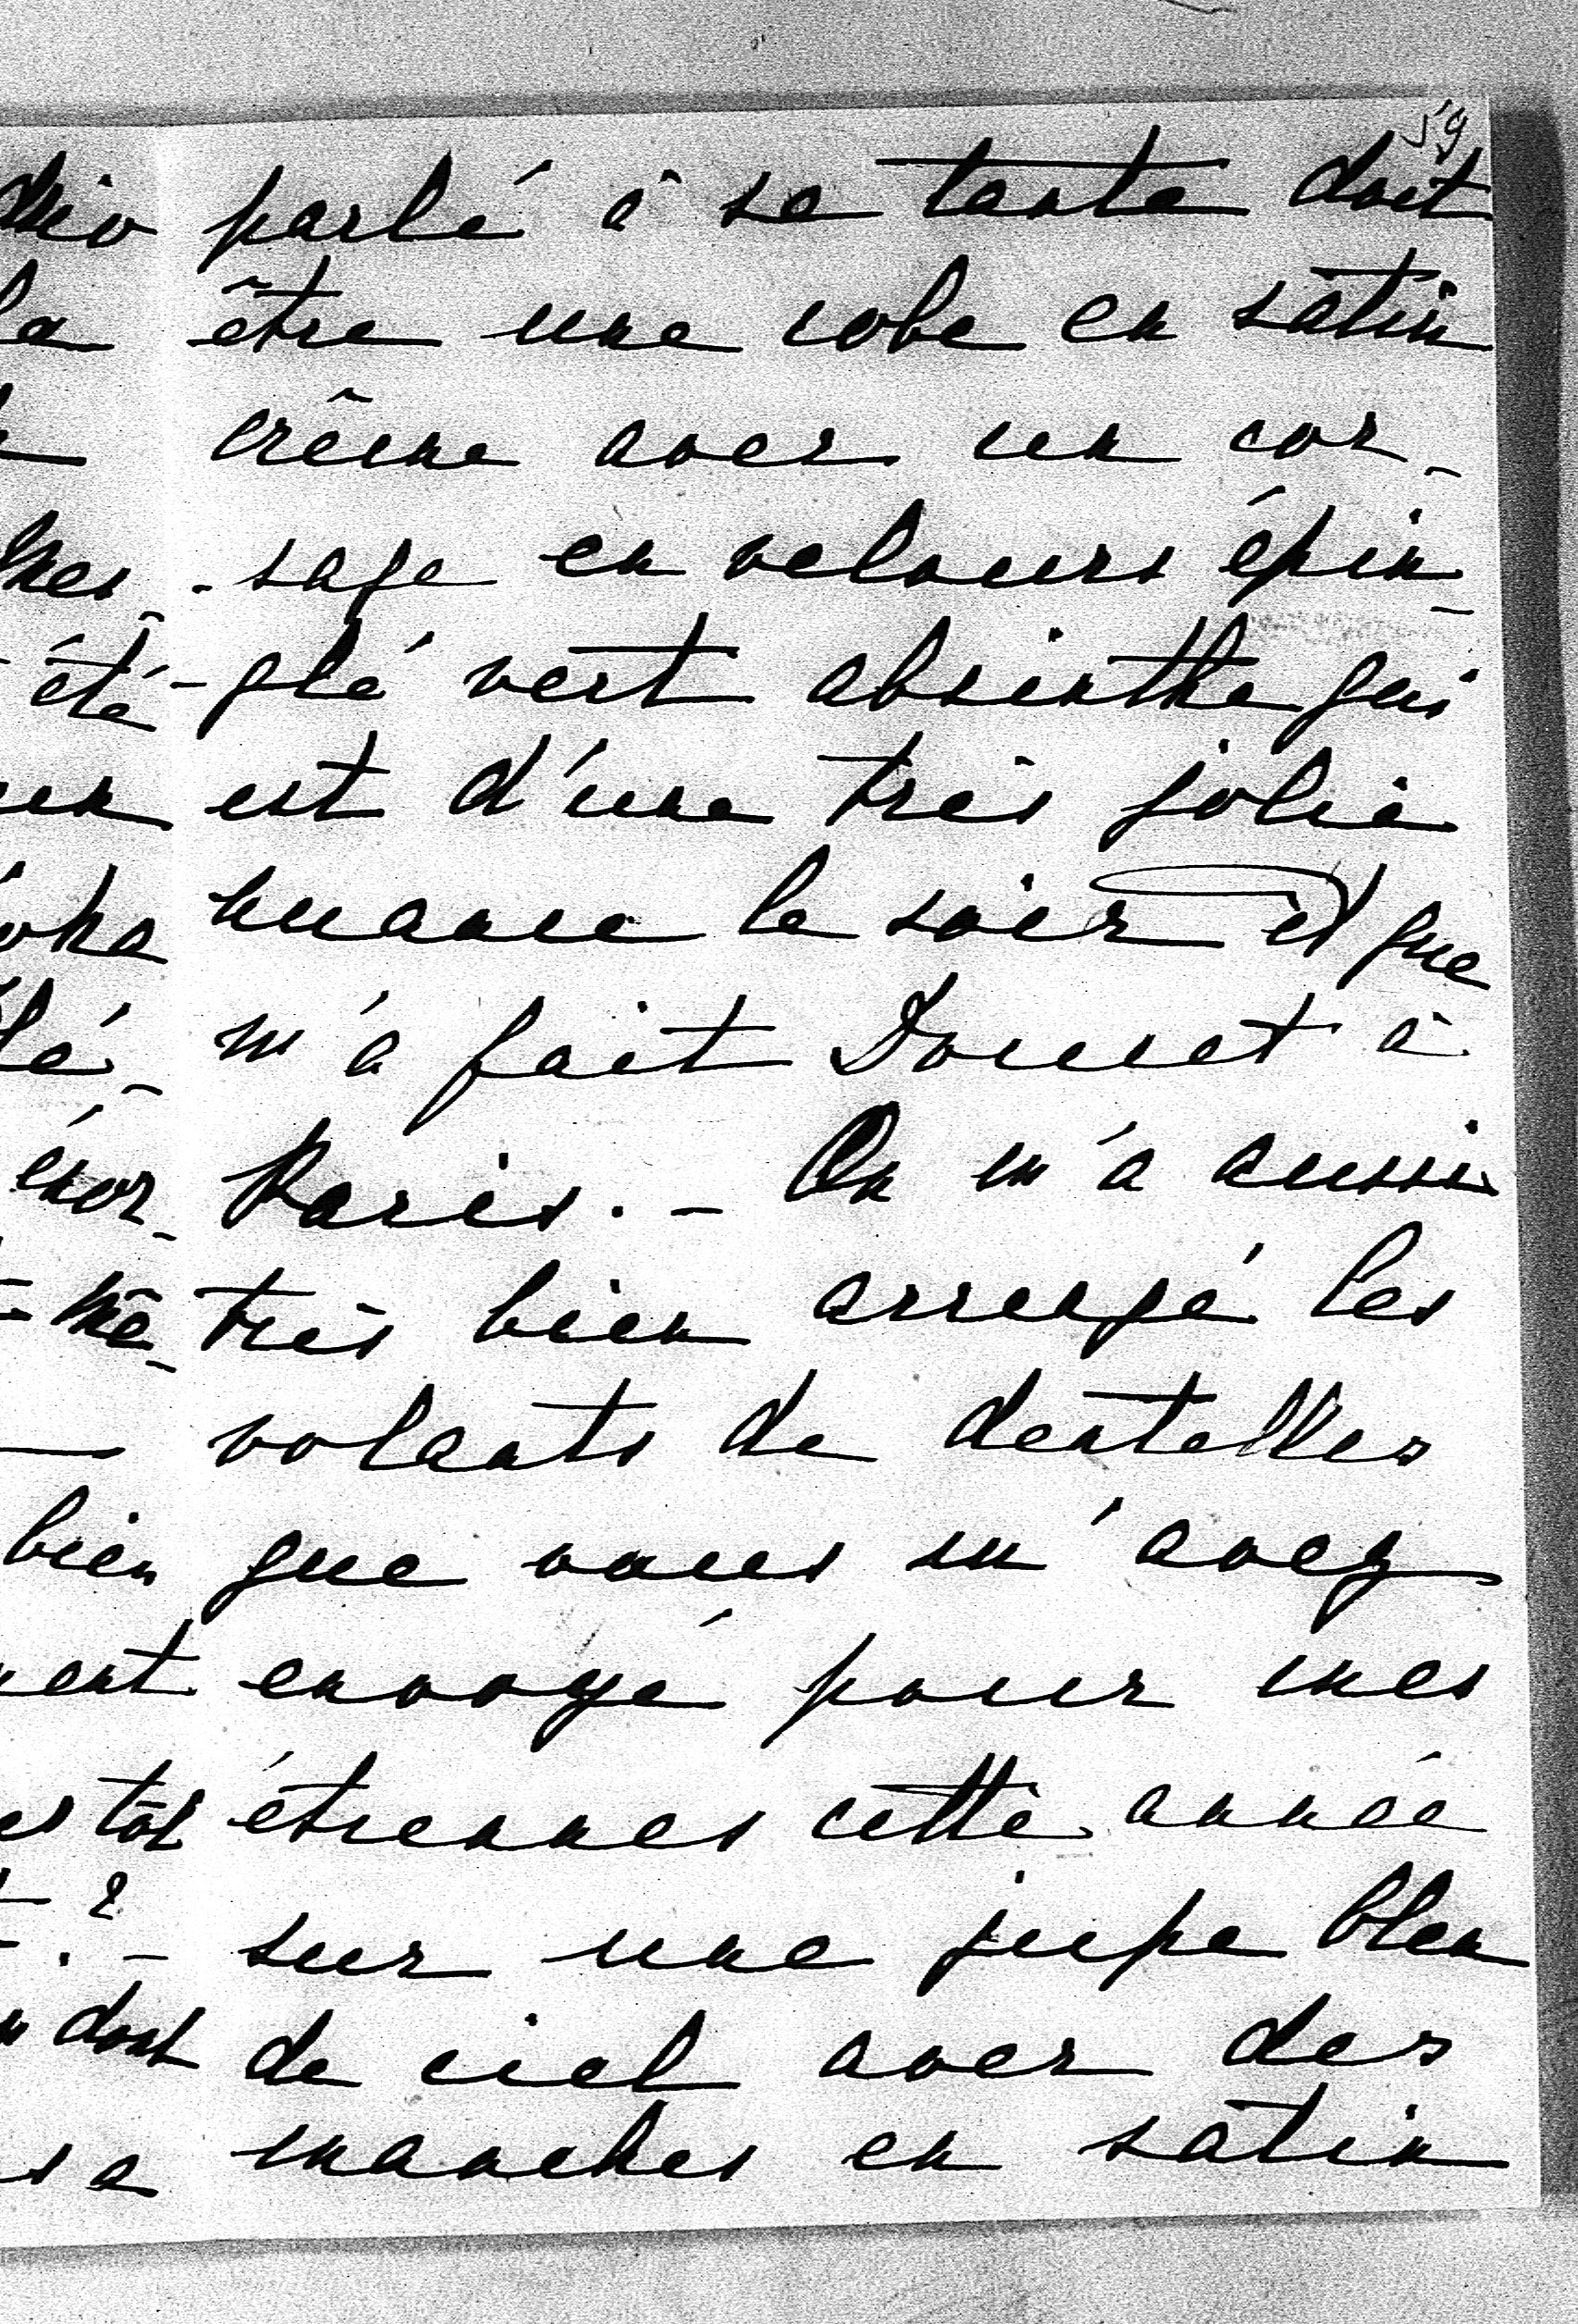 59
parlé à sa tante doit
être une robe en satin
crême avec un cor-
-sage en velours épin-
-glé vert absinthe qui
est d'une très jolie
nuance le soir et que
m'a fait Doucet à
Paris. - On m'a aussi
très bien arrangé les
volants de dentelles
que vous m'avez
envoyé pour mes
étrennes cette année
sur une jupe bleu
de ciel avec des
manches en satin
la
été
un
bien
dont
sa